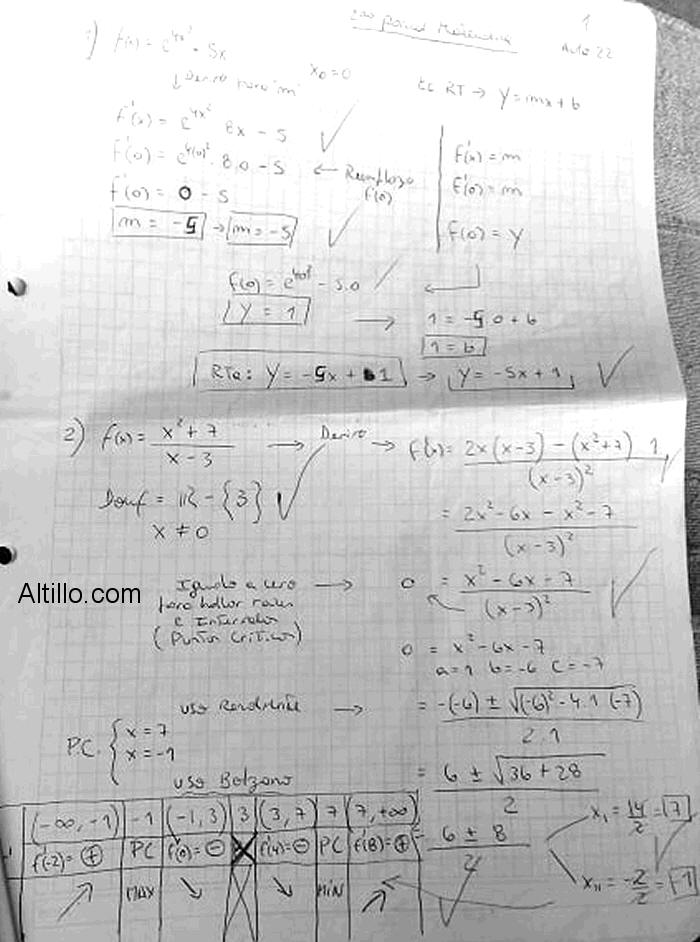 2do parcial Matemática
1
Aula 22
1) f(x) = e^{4x²} - 5x
↓ Derivo para "m"
x₀ = 0
Ec RT → y = mx + b
f'(x) = e^{4x²} 8x - 5
f'(0) = e^{4(0)²} . 8.0 - 5 ← Reemplazo f'(0)
f'(0) = 0 - 5
m = -5 → m = -5
f'(x) = m
f'(0) = m
f(0) = y
f(0) = e^{4.0²} - 5.0
y = 1 → 1 = -5 0 + b
1 = b
RTa: y = -5x + 1 → y = -5x + 1
2) f(x) = \frac{x² + 7}{x - 3} → Derivo → f'(x) = \frac{2x(x-3) - (x²+7) 1}{(x-3)²}
Domf = ℝ - {3}
x ≠ 0
= \frac{2x² - 6x - x² - 7}{(x-3)²}
Igualo a cero → 0 = \frac{x² - 6x - 7}{(x-3)²}
para hallar raíces
e Intervalos
(Puntos Críticos)
Altillo.com
0 = x² - 6x - 7
a=1 b=-6 c=-7
uso Resolvente → = \frac{-(-6) ± \sqrt{(-6)² - 4.1 (-7)}}{2.1}
P.C. { x = 7
x = -1
= \frac{6 ± \sqrt{36 + 28}}{2}
uso Bolzano
= \frac{6 ± 8}{2}
x_I = \frac{14}{2} = 7
x_II = \frac{-2}{2} = -1
(-∞, -1) | -1 | (-1, 3) | 3 | (3, 7) | 7 | (7, +∞)
f'(-2) = ⊕ | PC | f'(0) = ⊖ | X | f'(4) = ⊖ | PC | f'(8) = ⊕
↗ | MAX | ↘ | X | ↘ | MÍN | ↗